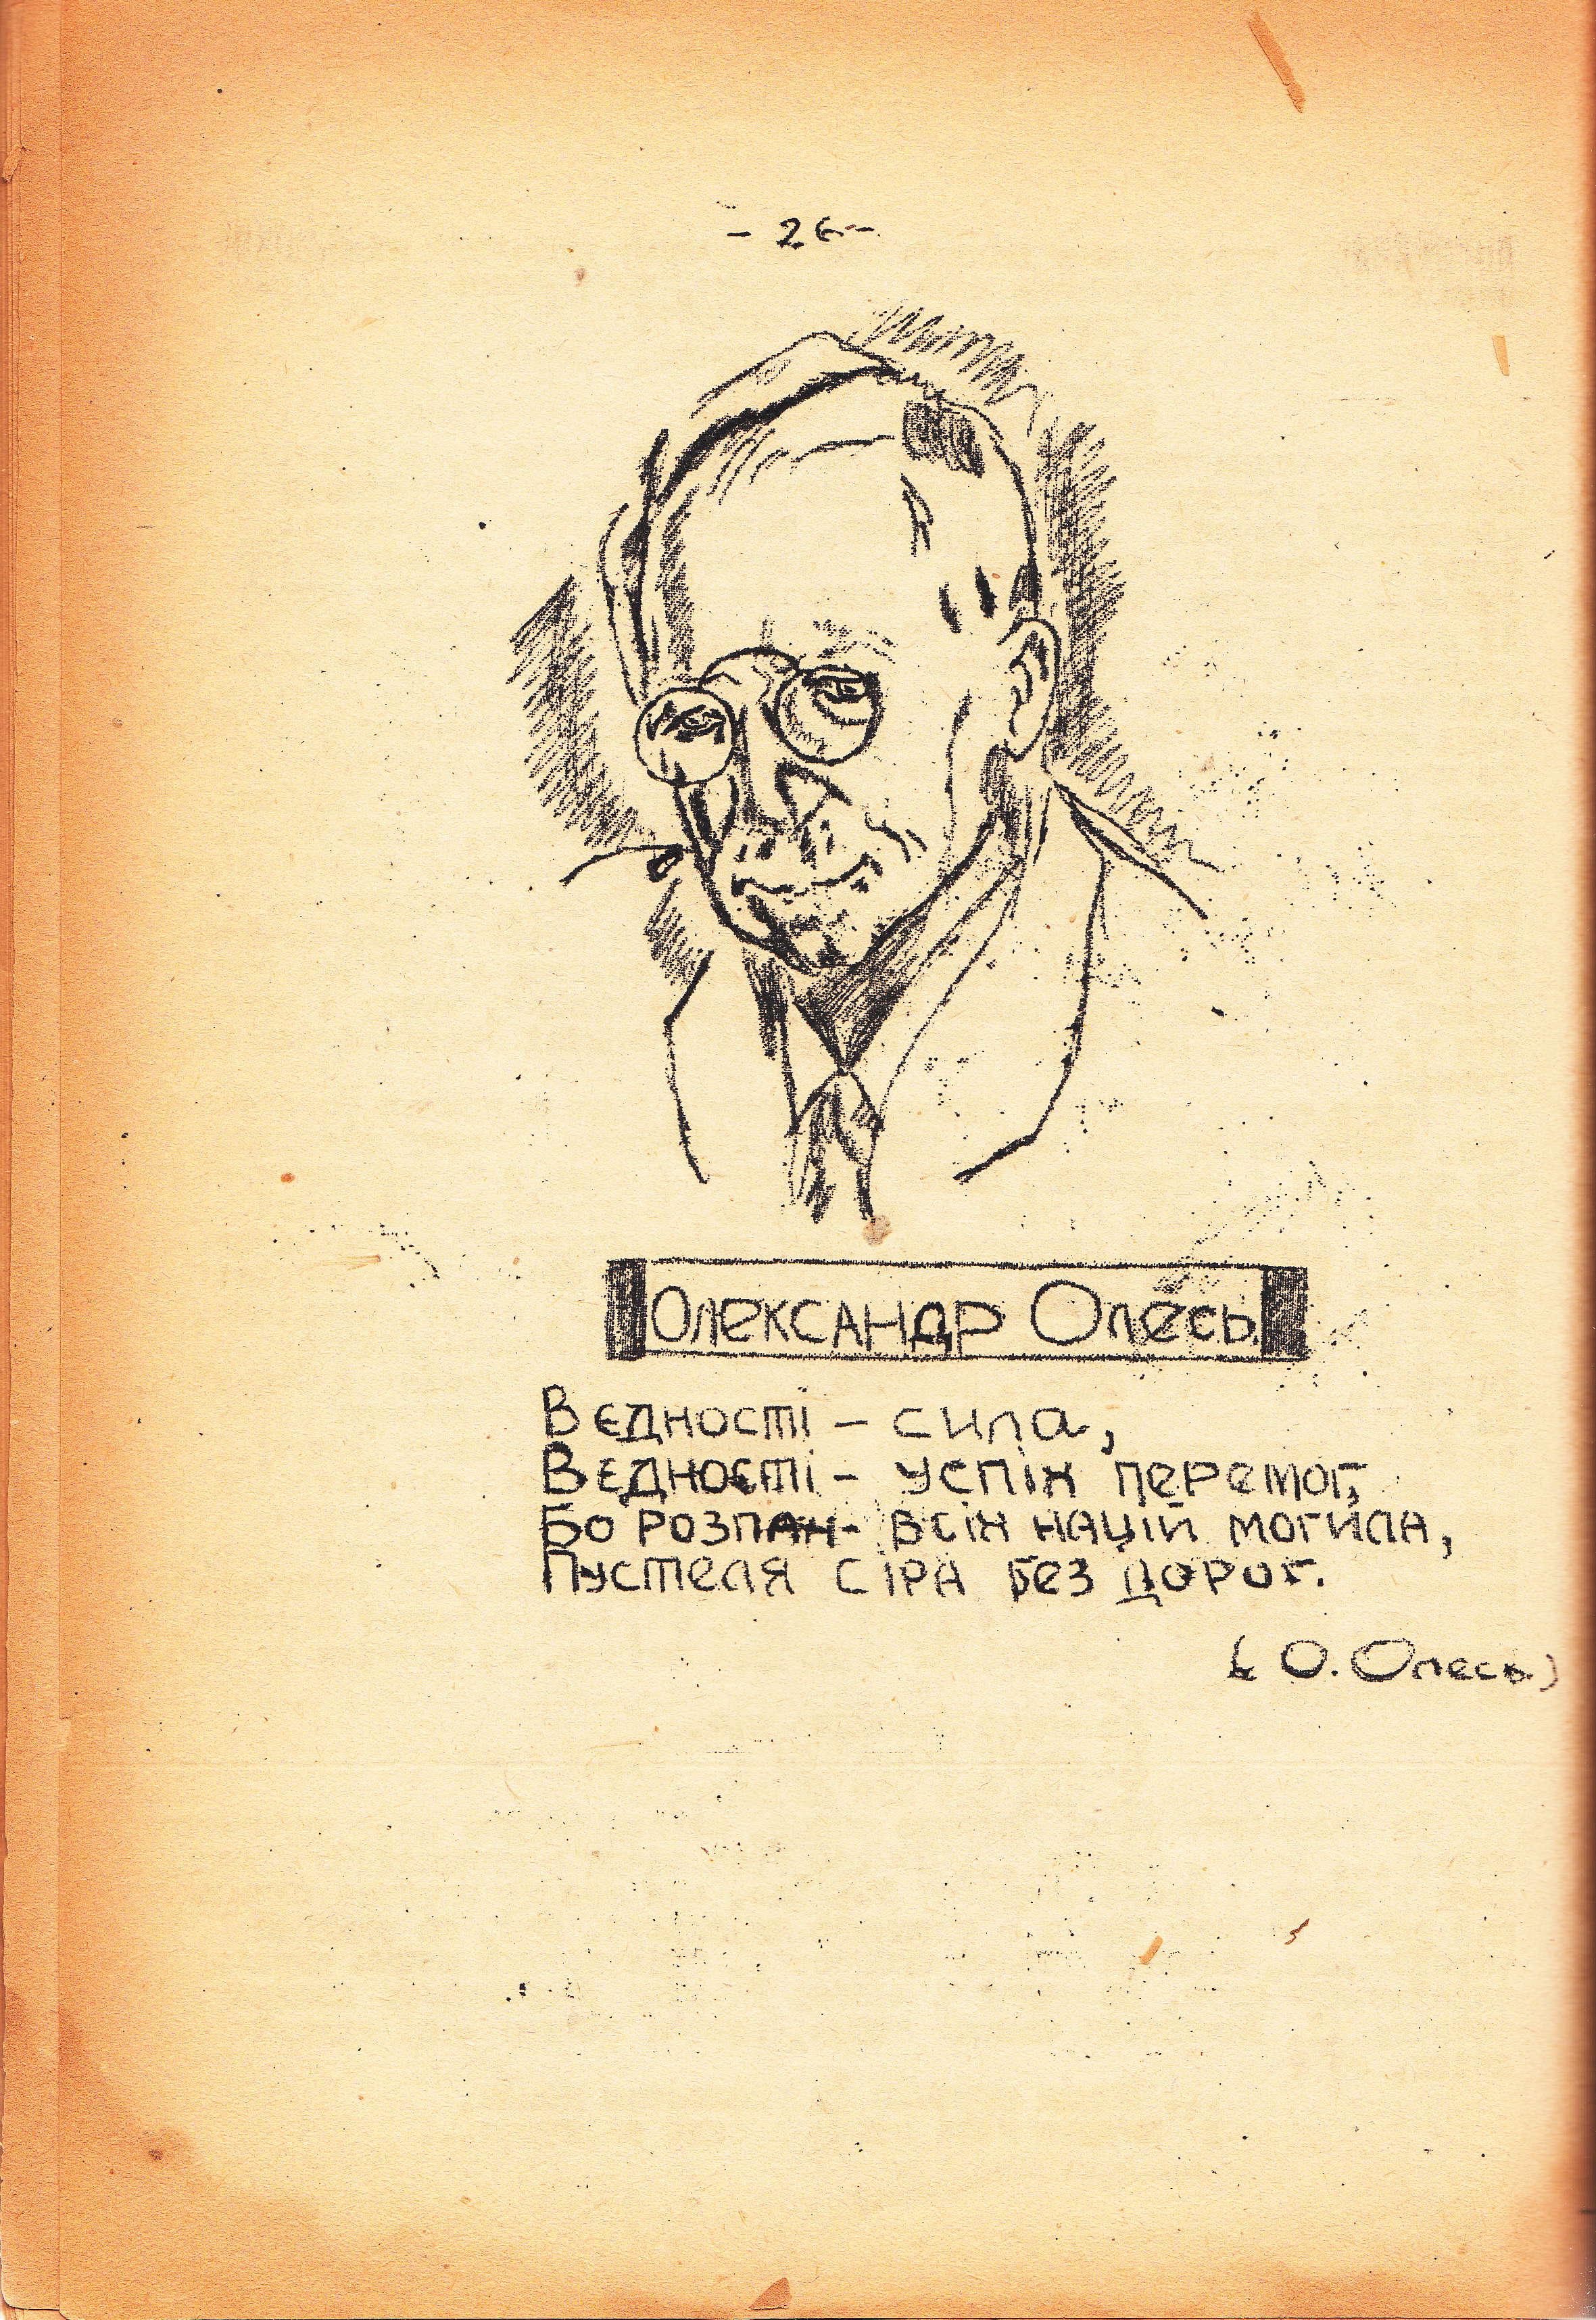 - 26 -
Олександр Олесь
В єдності - сила,
В єдності - успіх перемог,
Бо розпач - всіх націй могила,
Пустеля сіра без дорог.
(О. Олесь)